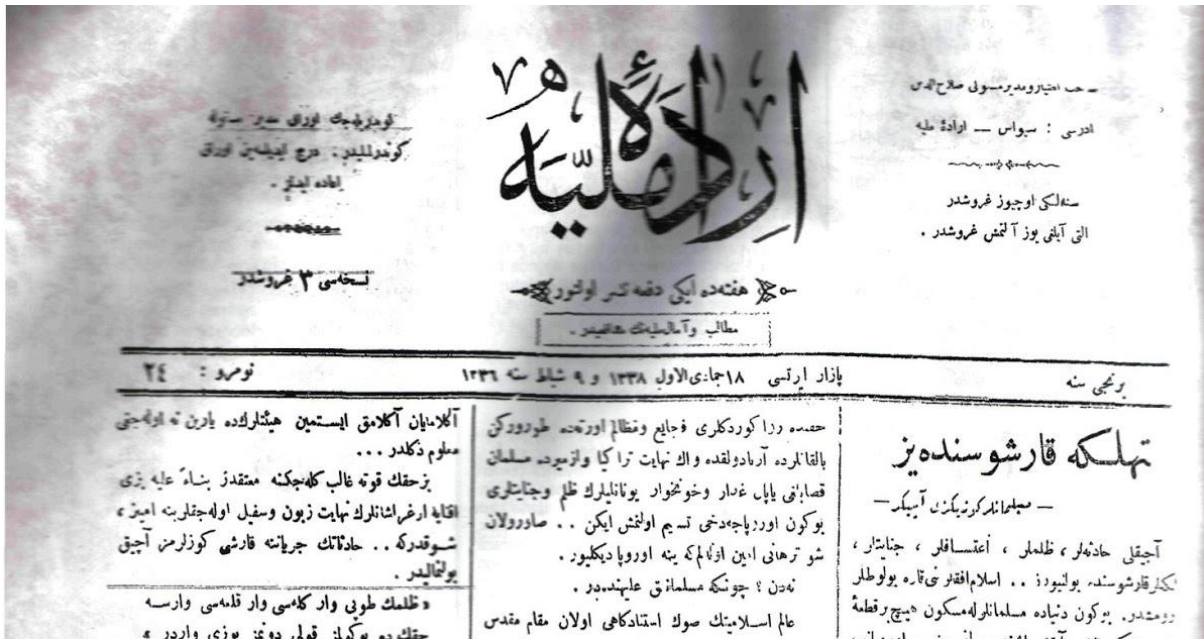 صاحب امتياز ومدير مسئولى صلاح الدين
ادرسى : سيواس — ارادهٔ مليه
سنه‌لكى اوچيوز غروشدر
التى آيلغى يوز آلتمش غروشدر .
ارادهٔ مليه
هفته‌ده ايكى دفعه نشر اولنور
مطالب وآمال مليه‌نك
اوراق مدير
كوندرلميدر . درج ايديلمين اوراق
اعاده ايدلمز .
نسخه‌سى ٣ غروشدر
برنجى سنه
پازار ايرتسى ١٨ جمادى‌الاول ١٣٣٨ و ٩ شباط سنه ١٣٣٦
نومرو : ٢٤
تهلكه قارشوسنده‌يز
— مسلمانلر —
آجيقلى حادثه‌لر ، ظلملر ، اعتسافلر ، جنايتلر ،
قارشوسنده بولنيورز . . اسلام افقلرينى قاره بولوطلر
بوكون دنياده مسلمانلرله مسكون هيچ بر قطعهٔ
حقمده روا كوردكلرى فجايع ومظالم اورته‌ده طورركن
بالقانلرده آناطولیده واك نهايت تراكيا وازميرده مسلمان
قصابلغى ياپان غدار وخونخوار يونانليلرك ظلم وجنايتلرى
بوكون اوروپاجه‌دخى تسليم اولنمش ايكن . . صاورولان
شو ترهاتى ينه اوروپا ديكليور .
نه‌دن ؟ چونكه مسلمانلق عليهنده‌در .
عالم اسلاميتك صوك استنادكاهى اولان مقام مقدس
آكلاميان آكلامق ايسته‌مين هيئتلرك‌ده يارين نه اوله‌جغى
معلوم دكلدر ...
بز حقك قوته غالب كله‌جكنه معتقدز بناءً عليه بزى
افنايه اوغراشانلرك نهايت زبون وسفيل اوله‌جقلرينه امينز ،
شوقدركه . . حادثاتك جرياننه قارشى كوزلرمز آچيق
بولنماليدر .
« ظلمك طوپى وار كله‌سى وار قلعه‌سى وارسه
حقك‌ده بوكولمز قولى دونمز يوزى واردر »